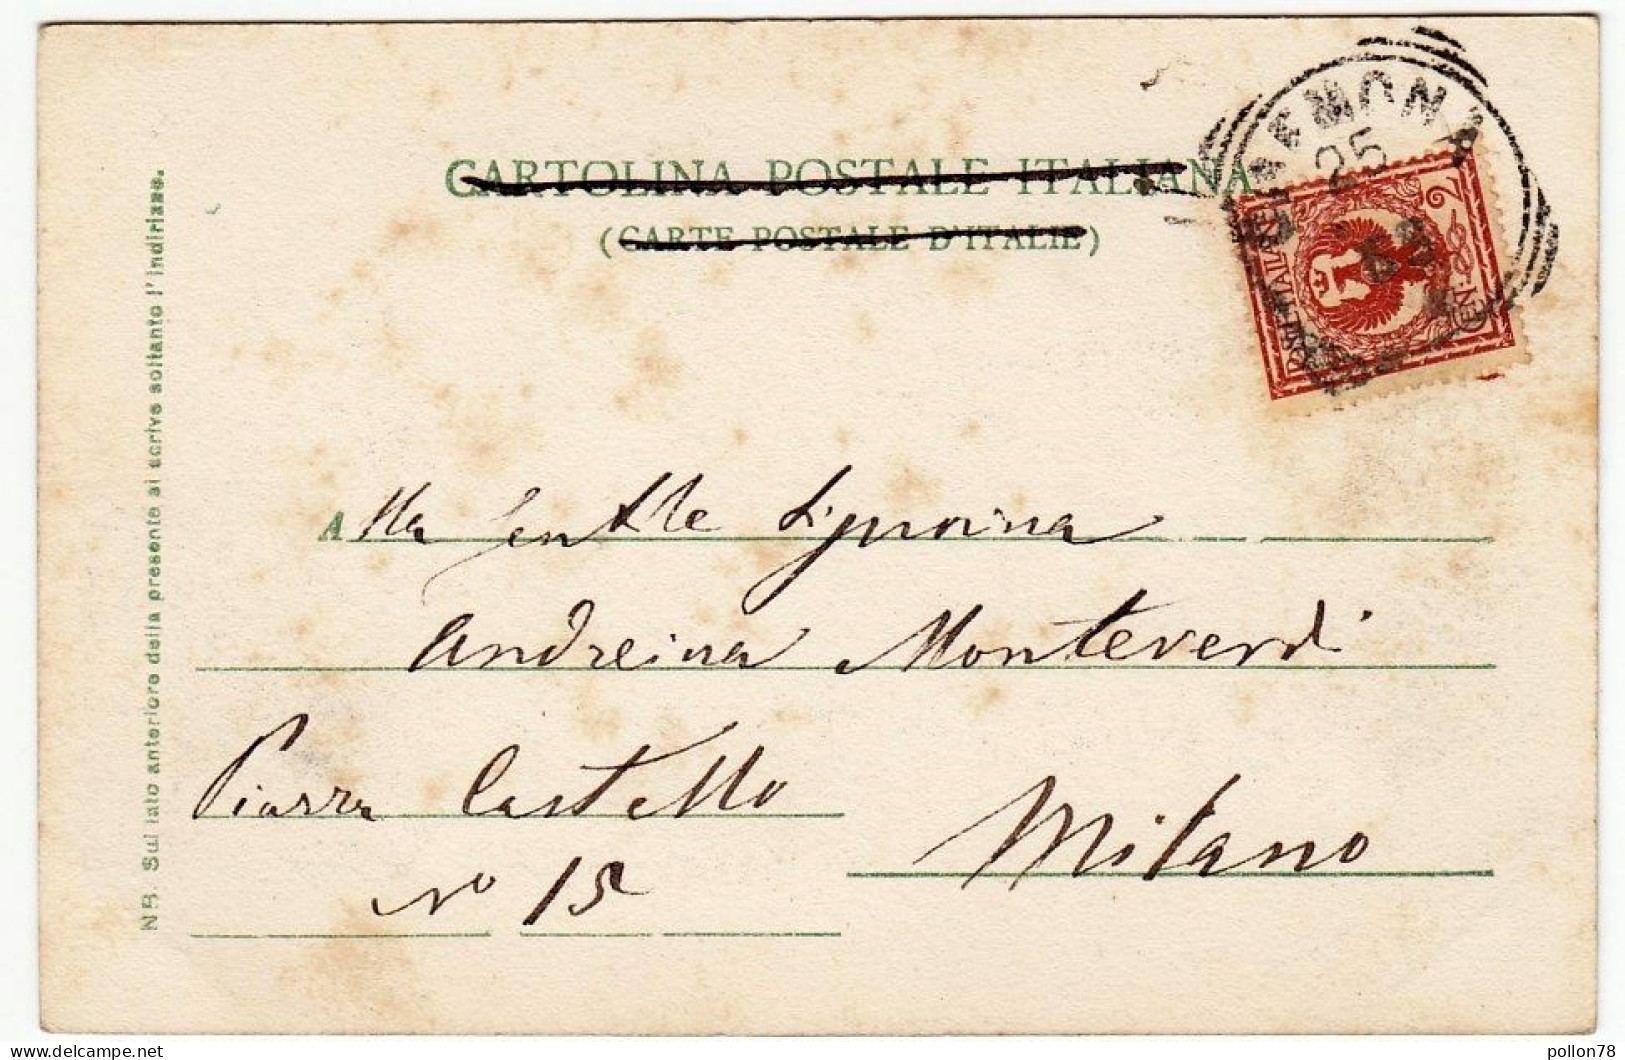 CARTOLINA POSTALE ITALIANA
(CARTE POSTALE D'ITALIE)
CREMONA
25
2
CEN:
Alla Gentile Signorina
Andreina Monteverdi
Piazza Castello
No 15
Milano
NB. Sul lato anteriore della presente si scrive soltanto l'indirizzo.
delcampe.net
pollon78